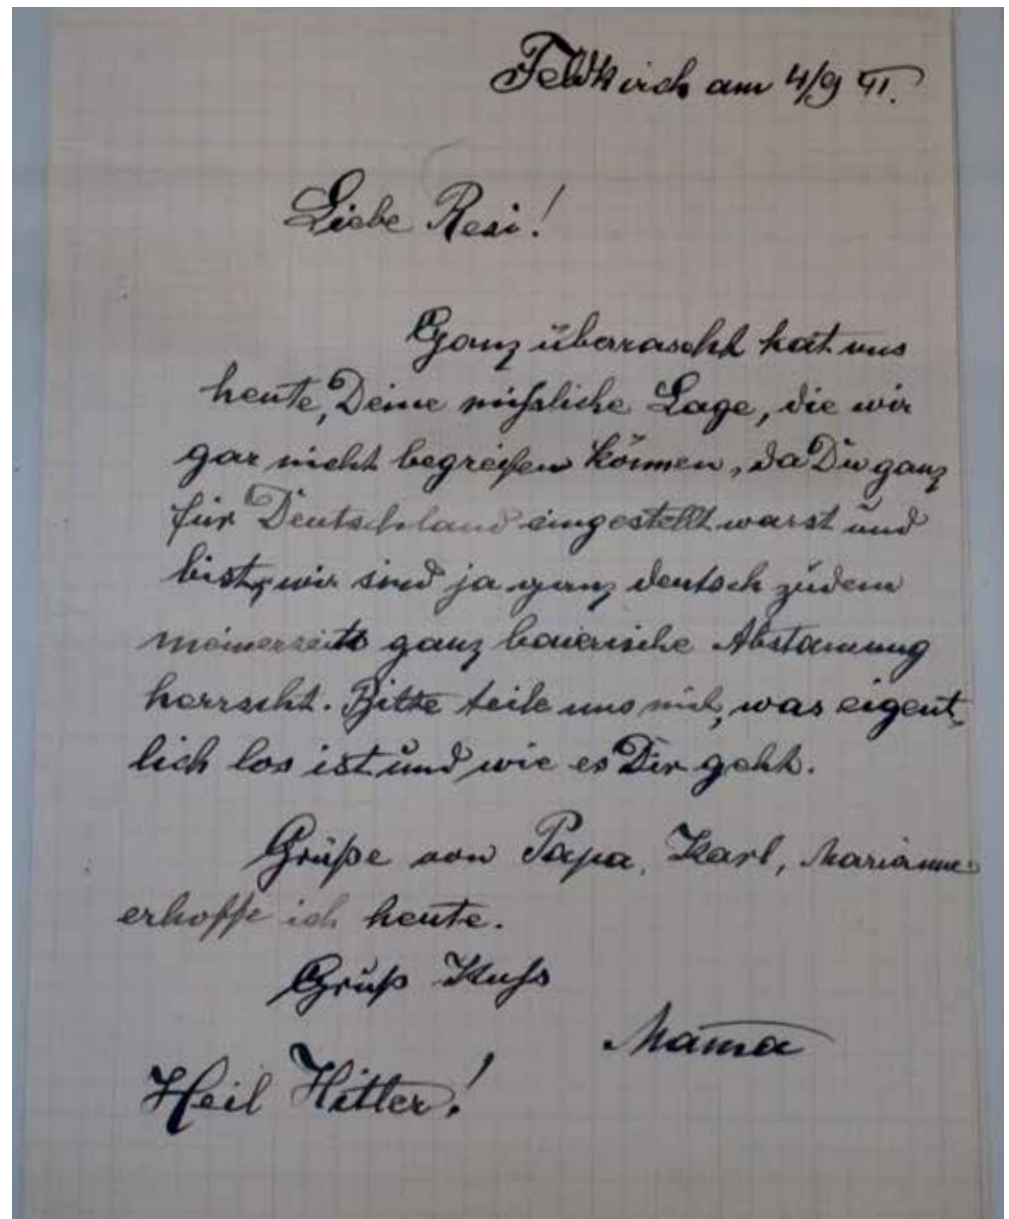 Feldkirch am 4/9 41.
Liebe Resi!
Ganz überrascht hat uns
heute, Deine mißliche Lage, die wir
gar nicht begreifen können, da Du ganz
für Deutschland eingestellt warst und
bist, wir sind ja ganz deutsch zudem
meinerseits ganz baierische Abstammung
herrscht. Bitte teile uns mit, was eigent-
lich los ist und wie es Dir geht.
Grüße von Papa, Karl, Marianne
erhoffe ich heute.
Gruß Kuß
Mama
Heil Hitler!